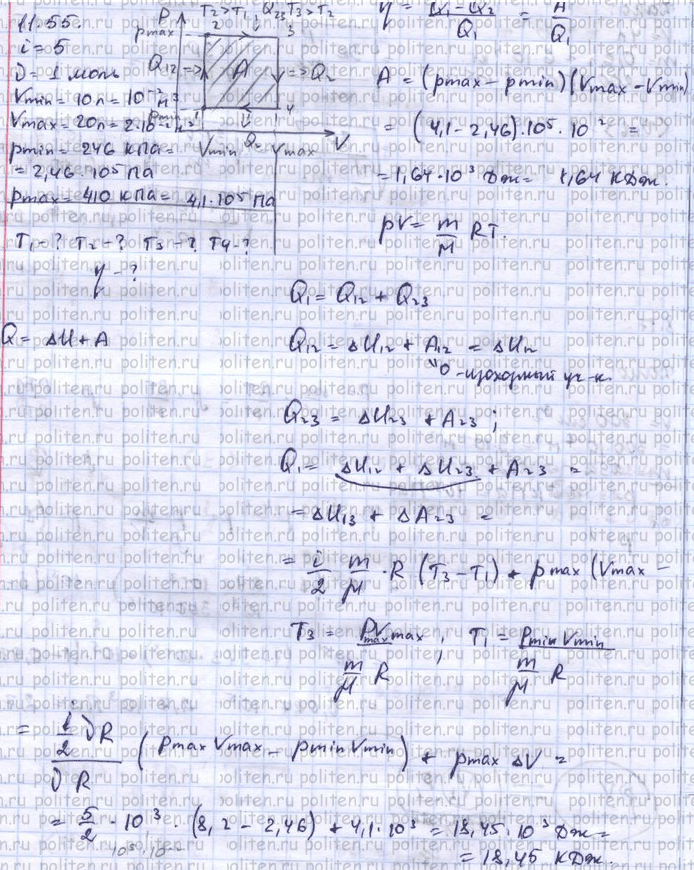 11.55.
i = 5
ν = 1 моль
Vmin = 10л = 10⁻² м³
Vmax = 20л = 2·10⁻² м³
pmin = 246 кПа =
= 2,46·10⁵ Па
pmax = 410 кПа = 4,1·10⁵ Па
T₁ - ? T₂ - ? T₃ - ? T₄ - ?
η - ?
Q = ΔU + A
P T₂ > T₁ Q₂₃ T₃ > T₂
pmax 2 3
Q₁₂ → A ⇒ Q₂
pmin 1 4
Vmin Vmax V
η = (Q₁ - Q₂)/Q₁ = A/Q₁
A = (pmax - pmin)(Vmax - Vmin)
= (4,1 - 2,46)·10⁵·10⁻² =
= 1,64·10³ Дж = 1,64 кДж.
pV = m/M RT.
Q₁ = Q₁₂ + Q₂₃
Q₁₂ = ΔU₁₂ + A₁₂ = ΔU₁₂
0 - изохорный уч-к.
Q₂₃ = ΔU₂₃ + A₂₃ ;
Q₁ = ΔU₁₂ + ΔU₂₃ + A₂₃ =
= ΔU₁₃ + ΔA₂₃ =
= i/2 m/M · R (T₃ - T₁) + pmax (Vmax -
T₃ = PmaxVmax / (m/M R) ; T₁ = Pmin Vmin / (m/M R)
= (i/2 νR)/(νR) (Pmax Vmax - pmin Vmin) + pmax ΔV =
= 5/2 · 10³ · (8,2 - 2,46) + 4,1·10³ = 18,45·10³ Дж =
= 18,45 кДж.
politen.ru